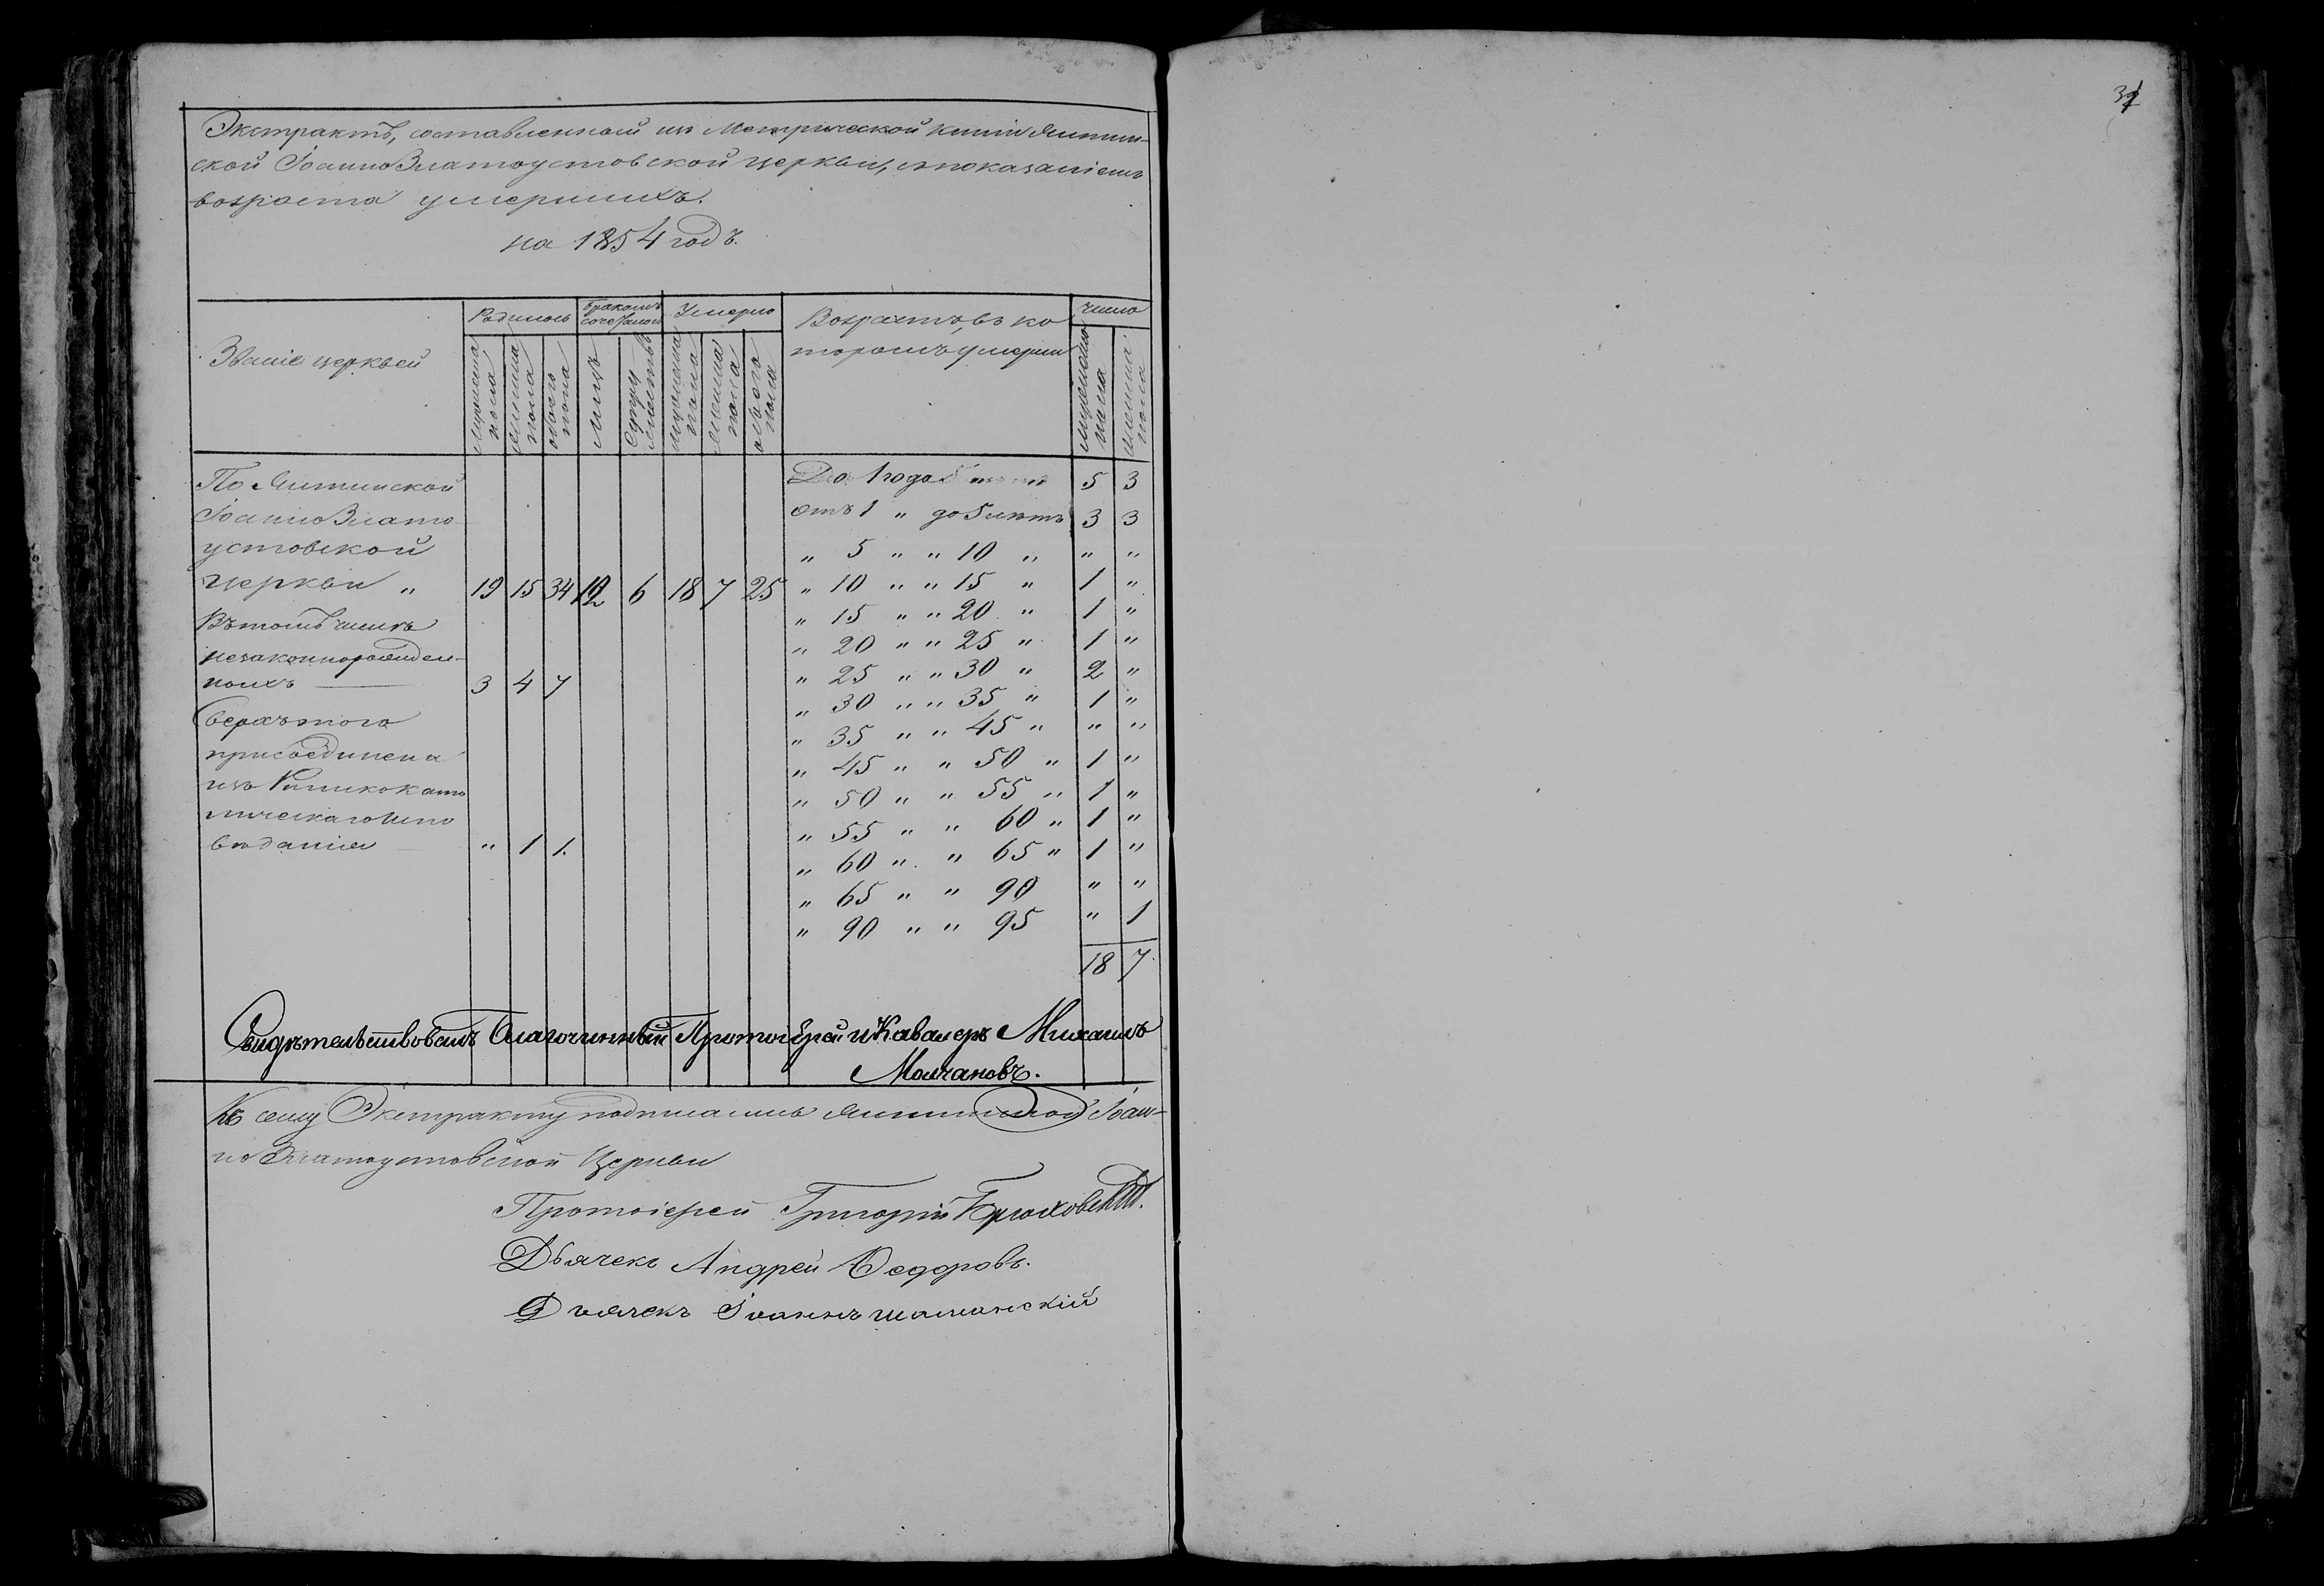 Экстрактъ, составленный изъ Метрической книги Ялтин-
ской ІоанноЗлатоустовской церкви, съ показаніемъ
возраста умершихъ.
на 1854 годъ.
Званіе церквей
Родилось
Бракомъ сочеталось
Умерло
Возрастъ, въ ко
торомъ умерли
Число
Мужеска пола
Женска пола
Обоего пола
Лицъ
Супружествъ
Мужеска пола
Женска пола
Обоего пола
Мужеска пола
Женска пола
По Ялтинской
ІоанноЗлато
устовской
церкви „ 19 15 34 12 6 18 7 25
Въ томъ числѣ
незаконнорожден-
ныхъ — 3 4 7
Сверхъ того
присоединена
изъ Римкокато
лическаго Испо
вѣданія „ 1 1.
До 1 года 5 3
отъ 1 „ до 5 лѣтъ 3 3
„ 5 „ „ 10 „ „ „
„ 10 „ „ 15 „ 1 „
„ 15 „ „ 20 „ 1 „
„ 20 „ „ 25 „ 1 „
„ 25 „ „ 30 „ 2 „
„ 30 „ „ 35 „ 1 „
„ 35 „ „ 45 „ „ „
„ 45 „ „ 50 „ 1 „
„ 50 „ „ 55 „ 1 „
„ 55 „ „ 60 „ 1 „
„ 60 „ „ 65 „ 1 „
„ 65 „ „ 90 „ „
„ 90 „ „ 95 „ 1
18 7
Свидѣтельствовалъ Благочинный Протоіерей и Кавалеръ Михаилъ
Молчановъ.
Къ сему Экстракту подписались Ялтинской Іоан-
но Златоустовской Церкви
Протоіерей Григорій
Дьячекъ Андрей Ѳедоровъ.
Дьячекъ Іоаннъ